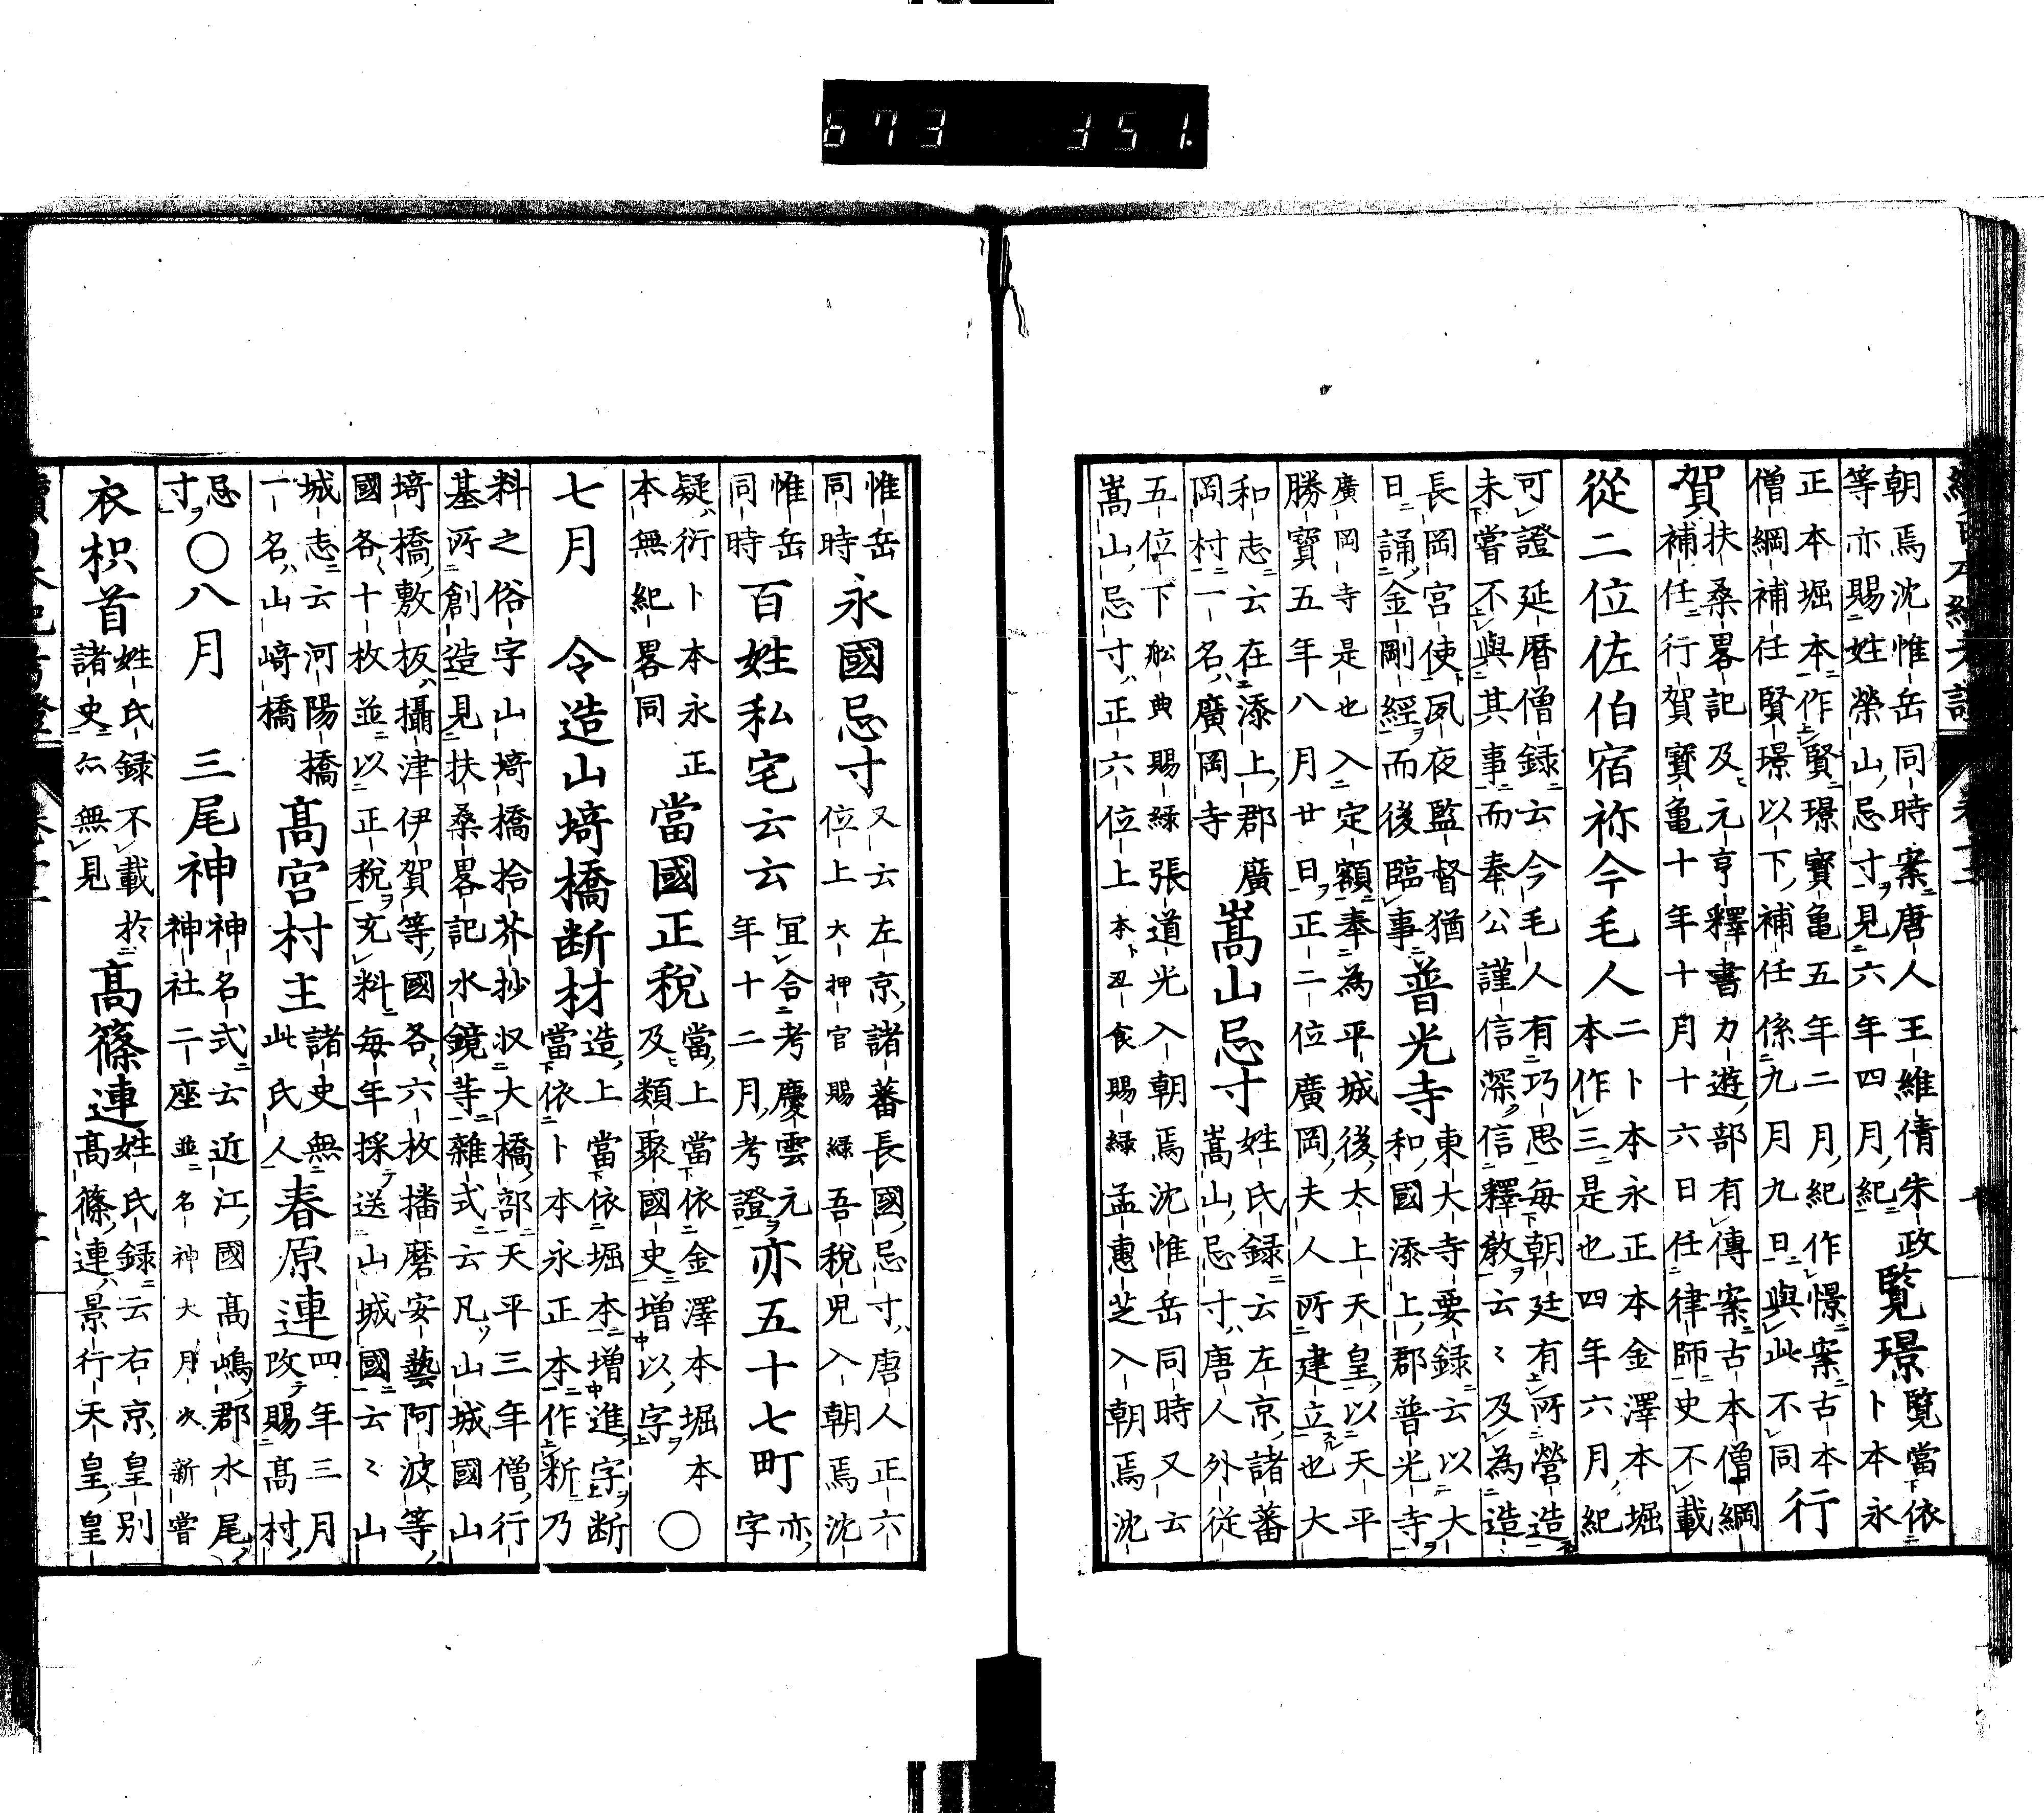 673 351.
朝焉沈惟岳同時案唐人王維倩朱政
等亦賜姓榮山忌寸見六年四月紀
覽璟
覽當依
卜本永
正本堀本作賢璟寶亀五年二月紀作憬案古本
僧綱補任賢璟以下補任係九月九日與此不同
行
賀
扶桑畧記及元亨釋書力遊部有傳案古本僧綱
補任行賀寶亀十年十月十六日任律師史不載
從二位佐伯宿祢今毛人
二卜本永正本金澤本堀
本作三是也四年六月紀
可證延暦僧録云今毛人有巧思每朝廷有所營造
未嘗不與其事而奉公謹信深信釋教云〻及為造
長岡宮使夙夜監督猶
日誦金剛經而後臨事
普光寺
東大寺要録云以大
和國添上郡普光寺
廣岡寺是也入定額奉為平城後太上天皇以天平
勝寶五年八月廿日正二位廣岡夫人所建立也大
和志云在添上郡廣
岡村一名廣岡寺
嵩山忌寸
姓氏録云左京諸蕃
嵩山忌寸唐人外從
五位下舩典賜綠張道光入朝焉沈惟岳同時又云
嵩山忌寸正六位上本卜丑食賜綠孟惠芝入朝焉沈
惟岳
同時
永國忌寸
又云左京諸蕃長國忌寸唐人正六
位上大押官賜綠吾税兒入朝焉沈
惟岳
同時
百姓私宅云云
宜合考慶雲元
年十二月考證
亦五十七町
亦
字
疑衍卜本永正
本無紀畧同
當國正税
當上當依金澤本堀本
及類聚國史増以字
○
七月 令造山埼橋断材
造上當依堀本増進字断
當依卜本永正本作新乃
料之俗字山埼橋拾芥抄収大橋部天平三年僧行
基所創造見扶桑畧記水鏡等雜式云凡山城國山
埼橋敷板攝津伊賀等國各六枚播磨安藝阿波等
國各十枚並以正税充料每年採送山城國云〻山
城志云河陽橋
一名山﨑橋
高宮村主
諸史無
此氏人
春原連
四年三月
改賜高村
忌
寸
○八月 三尾神
神名式云近江國高嶋郡水尾
神社二座並名神大月次新嘗
衣枳首
姓氏録不載於
諸史亦無見
高篠連
姓氏録云右京皇別
高篠連景行天皇皇